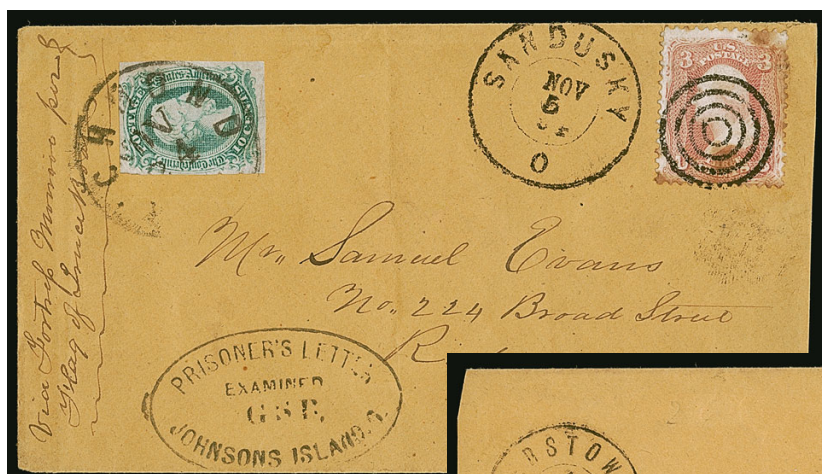 Via Fortress Monroe per
Flag of Truce Boat
TEN CENTS
SANDUSKY
NOV
5
O
U.S.
POSTAGE
3 3
Mr. Samuel Evans
No. 224 Broad Street
R
PRISONER'S LETTER
EXAMINED
JOHNSONS ISLAND. O.
RSTOW